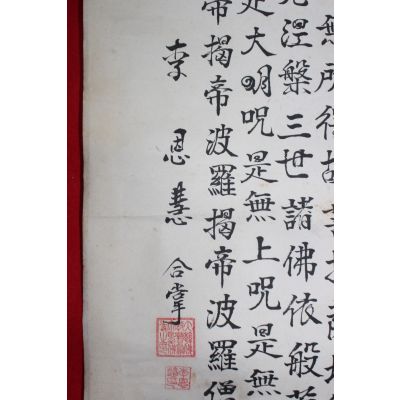 無所得故菩提薩埵
竟涅槃三世諸佛依般若
是大明呪是無上呪是無
帝揭帝波羅揭帝波羅僧
李恩慧合掌